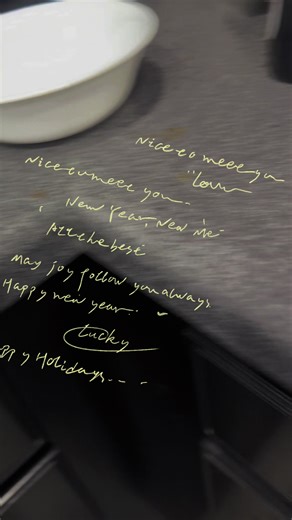 Nice to meet you
"Love
Nice to meet you.
New Year, New Me
All the best
May joy follow you always
Happy new year.
Lucky
ppy Holidays...